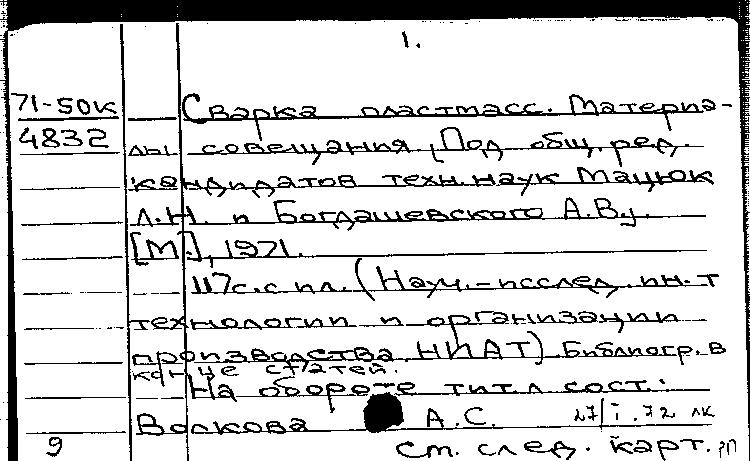 1.
71-50к Сварка пластмасс. Материа-
4832 лы совещания. [Под общ. ред.
кандидатов техн. наук Мацюк
Л.Н. и Богдашевского А.В.].
[М.], 1971.
117с. с ил. (Науч.-исслед. ин-т
технологии и организации
производства. НИАТ) Библиогр. в
конце статей.
На обороте тит. л. сост.:
Волкова А.С. 27/I.72 лк
9 см. след. карт. рп